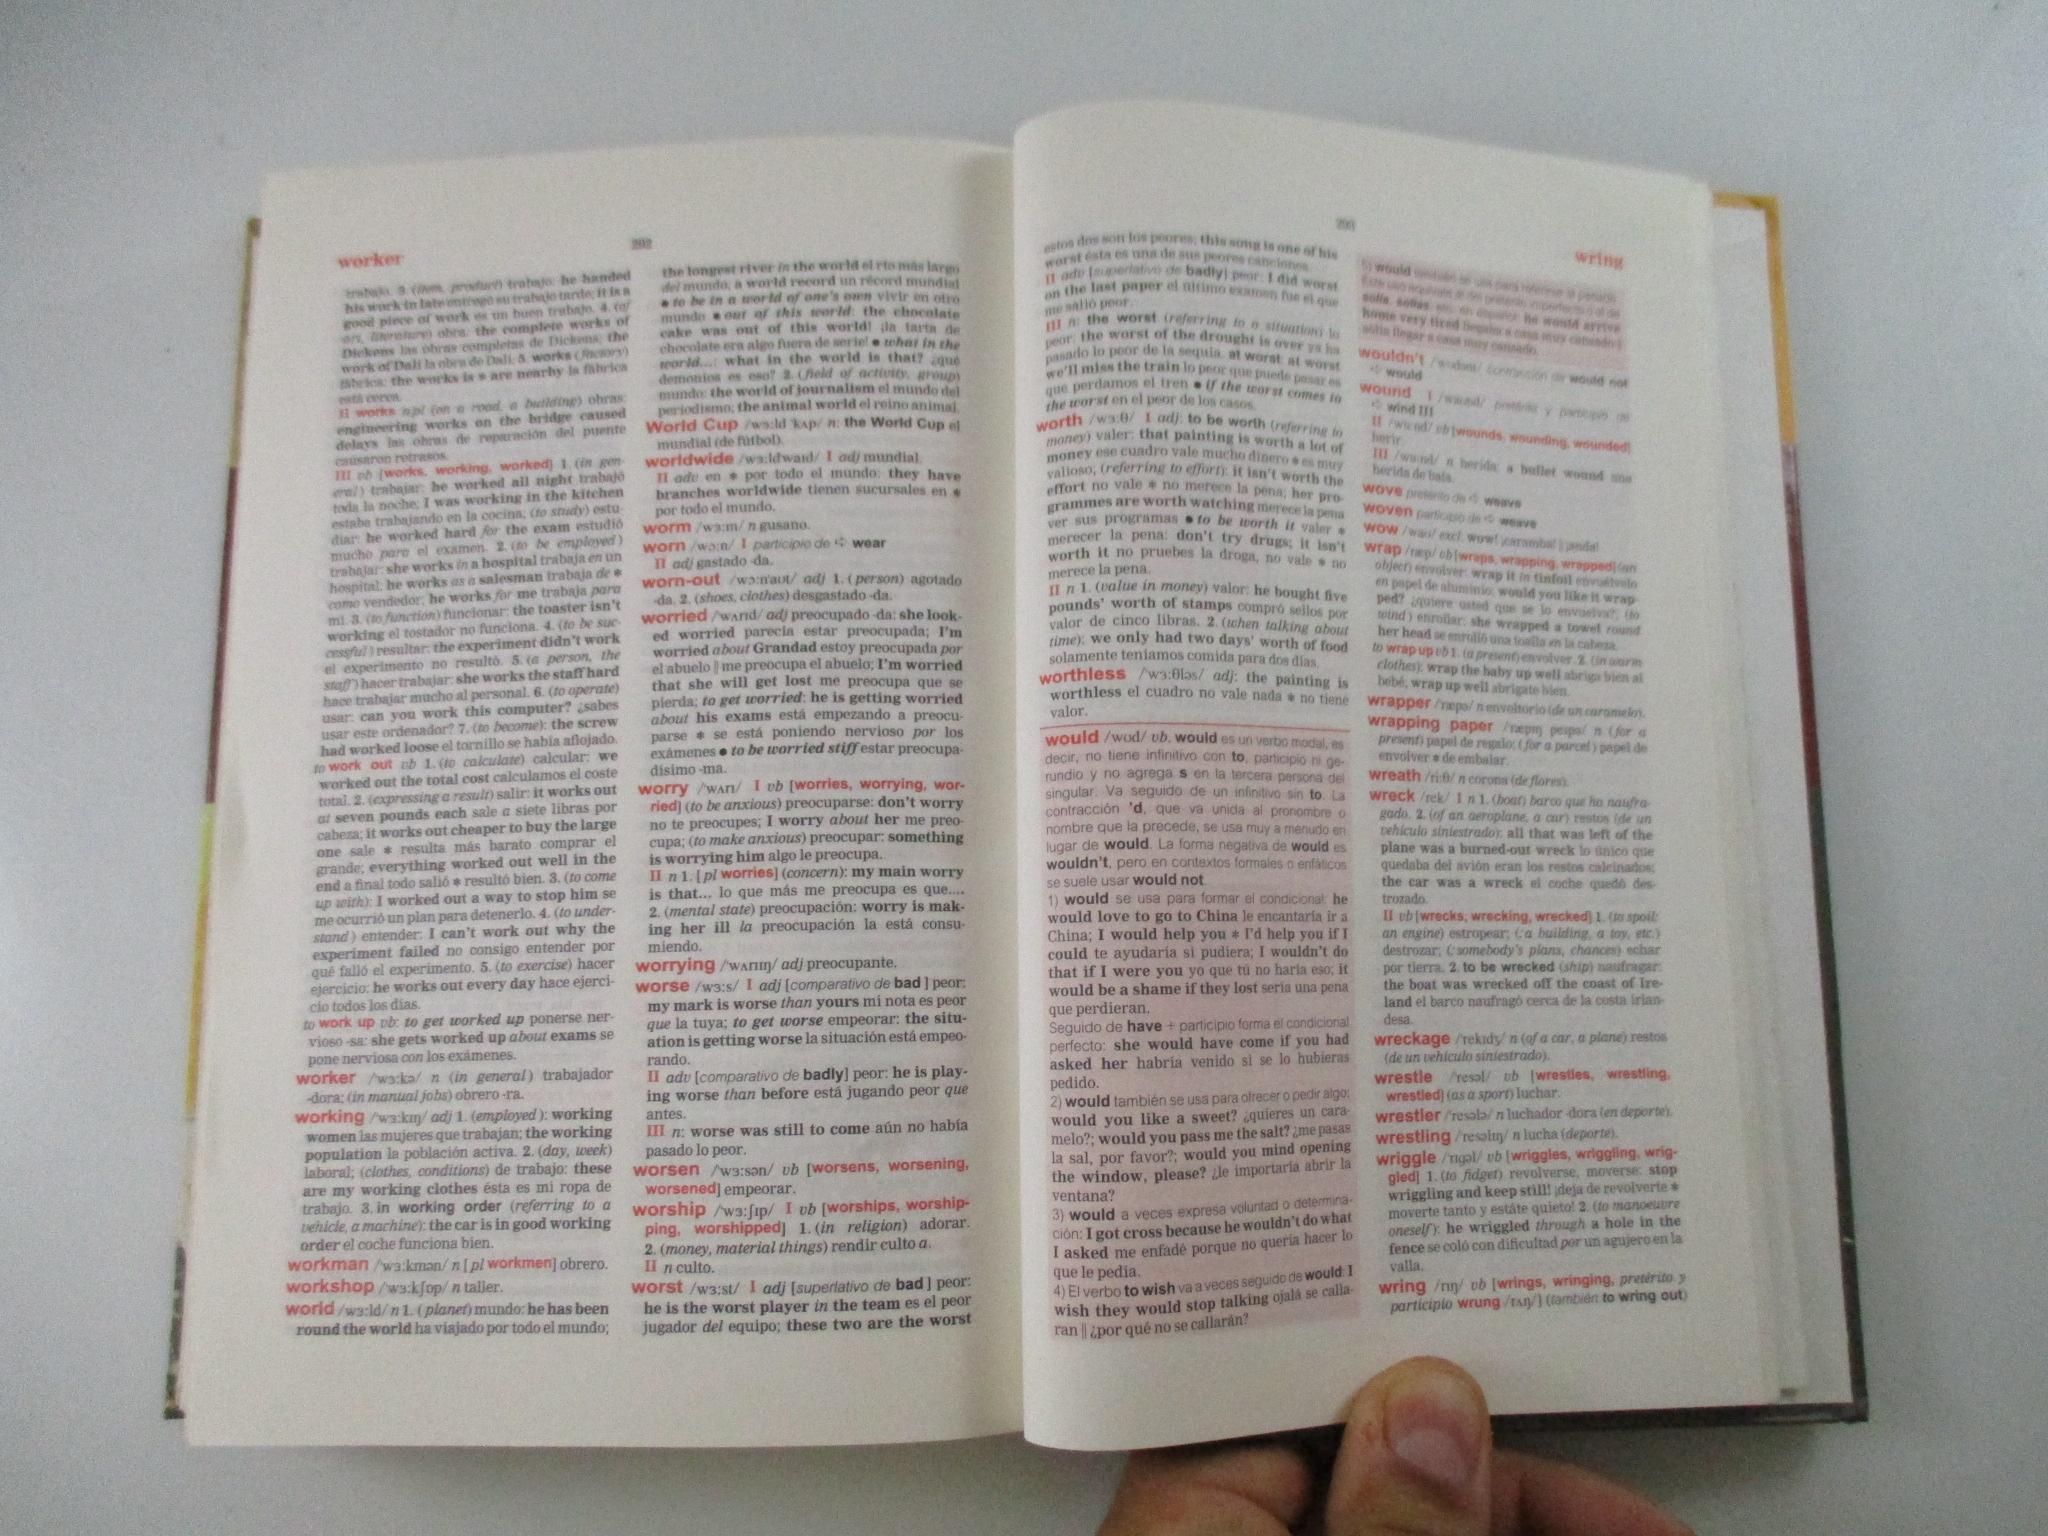 worker
292
trabajo. 3. (item, product) trabajo: he handed
his work in late entregó su trabajo tarde; it is a
good piece of work es un buen trabajo. 4. (of
art, literature) obra: the complete works of
Dickens las obras completas de Dickens; the
work of Dalí la obra de Dalí. 5. works (factory)
fábrica: the works is * are nearby la fábrica
está cerca.
II works n pl (on a road, a building) obras:
engineering works on the bridge caused
delays las obras de reparación del puente
causaron retrasos.
III vb [works, working, worked] 1. (in gen-
eral) trabajar: he worked all night trabajó
toda la noche; I was working in the kitchen
estaba trabajando en la cocina; (to study) estu-
diar: he worked hard for the exam estudió
mucho para el examen. 2. (to be employed)
trabajar: she works in a hospital trabaja en un
hospital; he works as a salesman trabaja de *
como vendedor; he works for me trabaja para
mí. 3. (to function) funcionar: the toaster isn't
working el tostador no funciona. 4. (to be suc-
cessful) resultar: the experiment didn't work
el experimento no resultó. 5. (a person, the
staff) hacer trabajar: she works the staff hard
hace trabajar mucho al personal. 6. (to operate)
usar: can you work this computer? ¿sabes
usar este ordenador? 7. (to become): the screw
had worked loose el tornillo se había aflojado.
to work out vb 1. (to calculate) calcular: we
worked out the total cost calculamos el coste
total. 2. (expressing a result) salir: it works out
at seven pounds each sale a siete libras por
cabeza; it works out cheaper to buy the large
one sale * resulta más barato comprar el
grande; everything worked out well in the
end a final todo salió * resultó bien. 3. (to come
up with): I worked out a way to stop him se
me ocurrió un plan para detenerlo. 4. (to under-
stand) entender: I can't work out why the
experiment failed no consigo entender por
qué falló el experimento. 5. (to exercise) hacer
ejercicio: he works out every day hace ejerci-
cio todos los días.
to work up vb: to get worked up ponerse ner-
vioso -sa: she gets worked up about exams se
pone nerviosa con los exámenes.
worker /ˈwɜ:kə/ n (in general) trabajador
-dora; (in manual jobs) obrero -ra.
working /ˈwɜ:kɪŋ/ adj 1. (employed): working
women las mujeres que trabajan; the working
population la población activa. 2. (day, week)
laboral; (clothes, conditions) de trabajo: these
are my working clothes ésta es mi ropa de
trabajo. 3. in working order (referring to a
vehicle, a machine): the car is in good working
order el coche funciona bien.
workman /ˈwɜ:kmən/ n [pl workmen] obrero.
workshop /ˈwɜ:kʃɒp/ n taller.
world /wɜ:ld/ n 1. (planet) mundo: he has been
round the world ha viajado por todo el mundo;
the longest river in the world el río más largo
del mundo; a world record un récord mundial
● to be in a world of one's own vivir en otro
mundo ● out of this world: the chocolate
cake was out of this world! ¡la tarta de
chocolate era algo fuera de serie! ● what in the
world...: what in the world is that? ¿qué
demonios es eso? 2. (field of activity, group)
mundo: the world of journalism el mundo del
periodismo; the animal world el reino animal.
World Cup /wɜ:ld ˈkʌp/ n: the World Cup el
mundial (de fútbol).
worldwide /wɜ:ldwaɪd/ I adj mundial.
II adv en * por todo el mundo: they have
branches worldwide tienen sucursales en *
por todo el mundo.
worm /wɜ:m/ n gusano.
worn /wɔ:n/ I participio de ➪ wear
II adj gastado -da.
worn-out /wɔ:nˈaʊt/ adj 1. (person) agotado
-da. 2. (shoes, clothes) desgastado -da.
worried /ˈwʌrɪd/ adj preocupado -da: she look-
ed worried parecía estar preocupada; I'm
worried about Grandad estoy preocupada por
el abuelo || me preocupa el abuelo; I'm worried
that she will get lost me preocupa que se
pierda; to get worried: he is getting worried
about his exams está empezando a preocu-
parse * se está poniendo nervioso por los
exámenes ● to be worried stiff estar preocupa-
dísimo -ma.
worry /ˈwʌrɪ/ I vb [worries, worrying, wor-
ried] (to be anxious) preocuparse: don't worry
no te preocupes; I worry about her me preo-
cupa; (to make anxious) preocupar: something
is worrying him algo le preocupa.
II n 1. [pl worries] (concern): my main worry
is that... lo que más me preocupa es que....
2. (mental state) preocupación: worry is mak-
ing her ill la preocupación la está consu-
miendo.
worrying /ˈwʌrɪɪŋ/ adj preocupante.
worse /wɜ:s/ I adj [comparativo de bad] peor:
my mark is worse than yours mi nota es peor
que la tuya; to get worse empeorar: the situ-
ation is getting worse la situación está empeo-
rando.
II adv [comparativo de badly] peor: he is play-
ing worse than before está jugando peor que
antes.
III n: worse was still to come aún no había
pasado lo peor.
worsen /ˈwɜ:sən/ vb [worsens, worsening,
worsened] empeorar.
worship /ˈwɜ:ʃɪp/ I vb [worships, worship-
ping, worshipped] 1. (in religion) adorar.
2. (money, material things) rendir culto a.
II n culto.
worst /wɜ:st/ I adj [superlativo de bad] peor:
he is the worst player in the team es el peor
jugador del equipo; these two are the worst
293
wring
estos dos son los peores; this song is one of his
worst ésta es una de sus peores canciones.
II adv [superlativo de badly] peor: I did worst
on the last paper el último examen fue el que
me salió peor.
III n: the worst (referring to a situation) lo
peor: the worst of the drought is over ya ha
pasado lo peor de la sequía. at worst: at worst
we'll miss the train lo peor que puede pasar es
que perdamos el tren ● if the worst comes to
the worst en el peor de los casos.
worth /wɜ:θ/ I adj: to be worth (referring to
money) valer: that painting is worth a lot of
money ese cuadro vale mucho dinero * es muy
valioso; (referring to effort): it isn't worth the
effort no vale * no merece la pena; her pro-
grammes are worth watching merece la pena
ver sus programas ● to be worth it valer *
merecer la pena: don't try drugs; it isn't
worth it no pruebes la droga, no vale * no
merece la pena.
II n 1. (value in money) valor: he bought five
pounds' worth of stamps compró sellos por
valor de cinco libras. 2. (when talking about
time): we only had two days' worth of food
solamente teníamos comida para dos días.
worthless /ˈwɜ:θləs/ adj: the painting is
worthless el cuadro no vale nada * no tiene
valor.
would /wʊd/ vb. would es un verbo modal, es
decir, no tiene infinitivo con to, participio ni ge-
rundio y no agrega s en la tercera persona del
singular. Va seguido de un infinitivo sin to. La
contracción 'd, que va unida al pronombre o
nombre que la precede, se usa muy a menudo en
lugar de would. La forma negativa de would es
wouldn't, pero en contextos formales o enfáticos
se suele usar would not.
1) would se usa para formar el condicional: he
would love to go to China le encantaría ir a
China; I would help you * I'd help you if I
could te ayudaría si pudiera; I wouldn't do
that if I were you yo que tú no haría eso; it
would be a shame if they lost sería una pena
que perdieran.
Seguido de have + participio forma el condicional
perfecto: she would have come if you had
asked her habría venido si se lo hubieras
pedido.
2) would también se usa para ofrecer o pedir algo:
would you like a sweet? ¿quieres un cara-
melo?; would you pass me the salt? ¿me pasas
la sal, por favor?; would you mind opening
the window, please? ¿le importaría abrir la
ventana?
3) would a veces expresa voluntad o determina-
ción: I got cross because he wouldn't do what
I asked me enfadé porque no quería hacer lo
que le pedía.
4) El verbo to wish va a veces seguido de would: I
wish they would stop talking ojalá se calla-
ran || ¿por qué no se callarán?
5) would también se usa para referirse al pasado.
Este uso equivale al del pretérito imperfecto o al de
solía, solías, etc. en español: he would arrive
home very tired llegaba a casa muy cansado ||
solía llegar a casa muy cansado.
wouldn't /ˈwʊdənt/ contracción de would not
➪ would
wound I /waʊnd/ pretérito y participio de
➪ wind III
II /wu:nd/ vb [wounds, wounding, wounded]
herir.
III /wu:nd/ n herida: a bullet wound una
herida de bala.
wove pretérito de ➪ weave
woven participio de ➪ weave
wow /waʊ/ excl. wow! ¡caramba! || ¡anda!
wrap /ræp/ vb [wraps, wrapping, wrapped] (an
object) envolver: wrap it in tinfoil envuélvelo
en papel de aluminio; would you like it wrap-
ped? ¿quiere usted que se lo envuelva?; (to
wind) enrollar: she wrapped a towel round
her head se enrolló una toalla en la cabeza.
to wrap up vb 1. (a present) envolver. 2. (in warm
clothes): wrap the baby up well abriga bien al
bebé; wrap up well abrígate bien.
wrapper /ˈræpə/ n envoltorio (de un caramelo).
wrapping paper /ˈræpɪŋ peɪpə/ n (for a
present) papel de regalo; (for a parcel) papel de
envolver * de embalar.
wreath /ri:θ/ n corona (de flores).
wreck /rek/ I n 1. (boat) barco que ha naufra-
gado. 2. (of an aeroplane, a car) restos (de un
vehículo siniestrado): all that was left of the
plane was a burned-out wreck lo único que
quedaba del avión eran los restos calcinados;
the car was a wreck el coche quedó des-
trozado.
II vb [wrecks, wrecking, wrecked] 1. (to spoil:
an engine) estropear; (: a building, a toy, etc.)
destrozar; (: somebody's plans, chances) echar
por tierra. 2. to be wrecked (ship) naufragar:
the boat was wrecked off the coast of Ire-
land el barco naufragó cerca de la costa irlan-
desa.
wreckage /ˈrekɪdʒ/ n (of a car, a plane) restos
(de un vehículo siniestrado).
wrestle /ˈresəl/ vb [wrestles, wrestling,
wrestled] (as a sport) luchar.
wrestler /ˈresələ/ n luchador -dora (en deporte).
wrestling /ˈresəlɪŋ/ n lucha (deporte).
wriggle /ˈrɪgəl/ vb [wriggles, wriggling, wrig-
gled] 1. (to fidget) revolverse, moverse: stop
wriggling and keep still! ¡deja de revolverte *
moverte tanto y estáte quieto! 2. (to manoeuvre
oneself): he wriggled through a hole in the
fence se coló con dificultad por un agujero en la
valla.
wring /rɪŋ/ vb [wrings, wringing, pretérito y
participio wrung /rʌŋ/] (también to wring out)